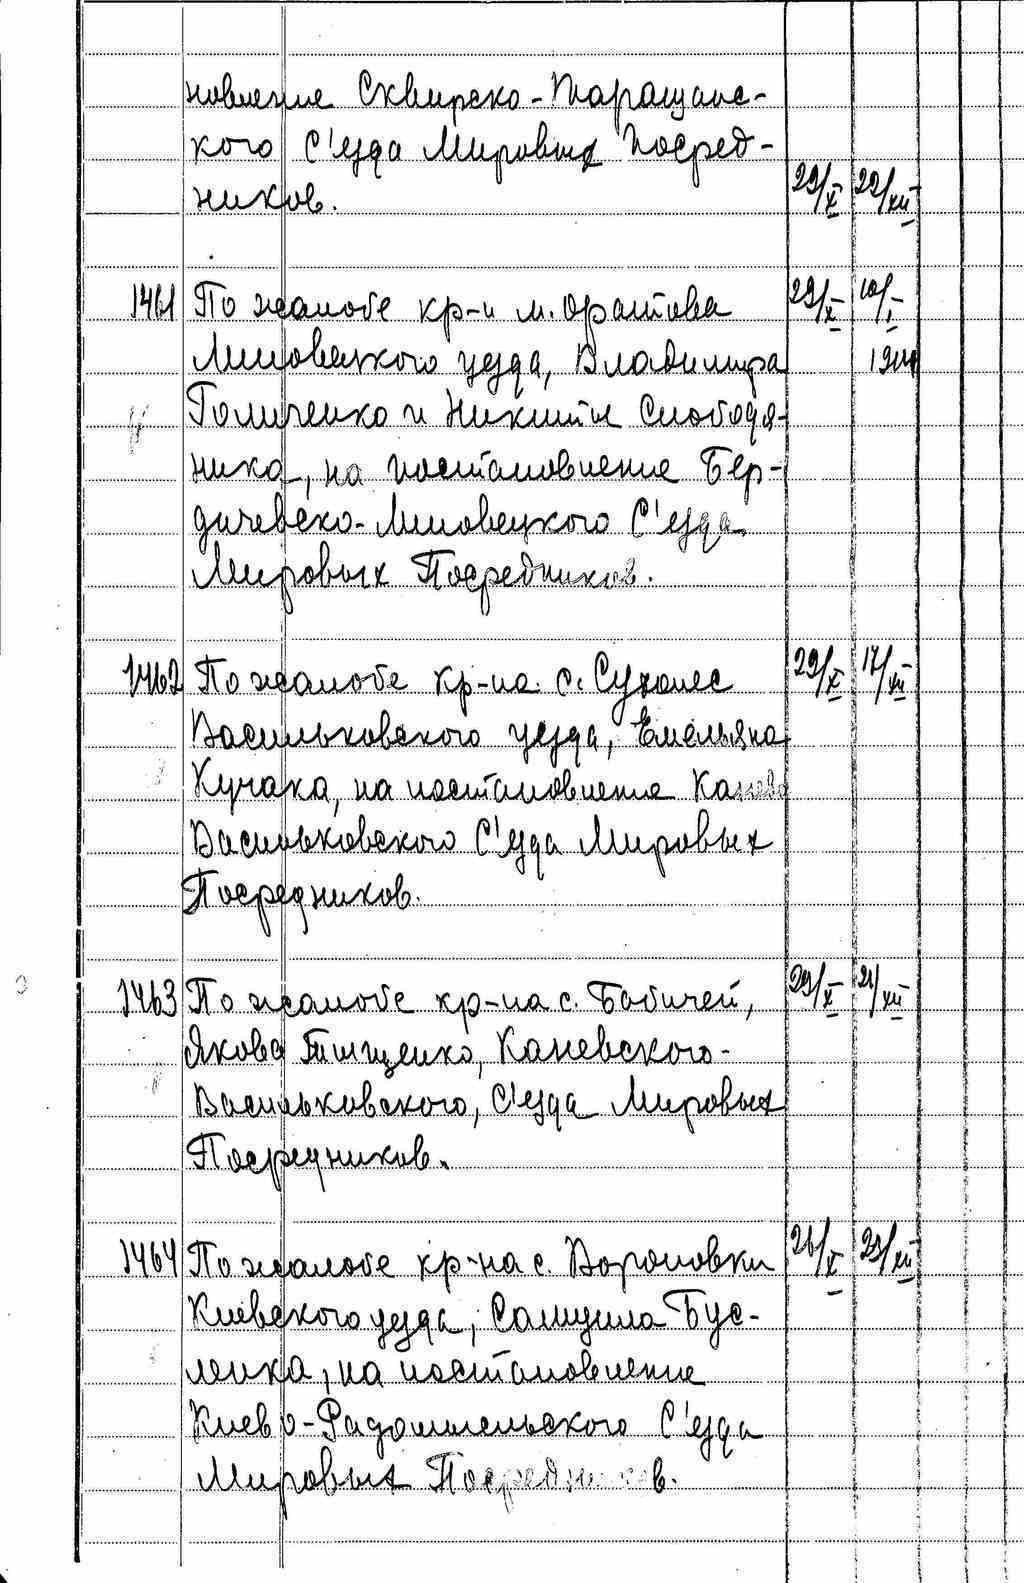 новление Сквирско-Таращанс-
кого С'езда Мировых Посред-
ников. 29/X 29/XII
1461 По жалобе кр-н м. Оратова 29/X 10/I
Липовецкого уезда, Владимира
Голиченко и Никиты Слободя-
ника, на постановление Бер-
дичевско-Липовецкого С'езда
Мировых Посредников.
1462 По жалобе кр-на с. Сухолес 29/X 17/XII
Васильковского уезда, Емельяна
Кучака, на постановление Канево
Васильковского С'езда Мировых
Посредников.
1463 По жалобе кр-на с. Бобичей, 29/X 21/XII
Якова Тищенко, Каневского-
Васильковского, С'езда Мировых
Посредников.
1464 По жалобе кр-на с. Вороновки 26/X
Киевского уезда, Самуила Бус-
ленка, на постановление
Киево-Радомысльского С'езда
Мировых Посредников.